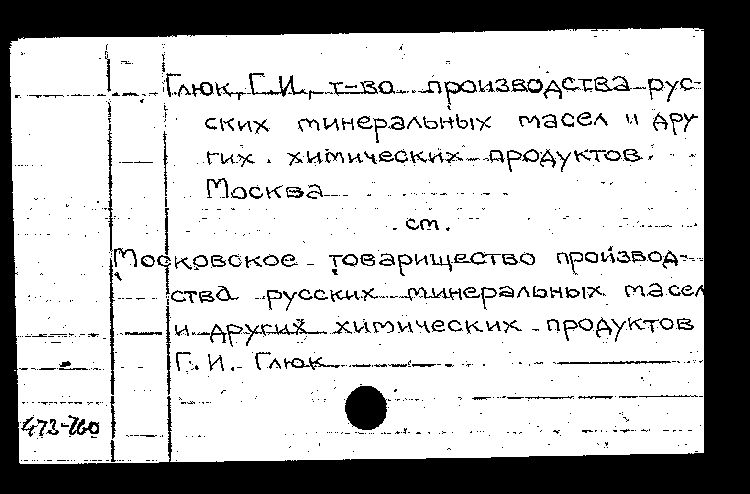 Глюк, Г.И., т-во производства рус-
ских минеральных масел и дру
гих химических продуктов.
Москва
см.
Московское товарищество производ-
ства русских минеральных масел
и других химических продуктов
Г. И. Глюк
473-760